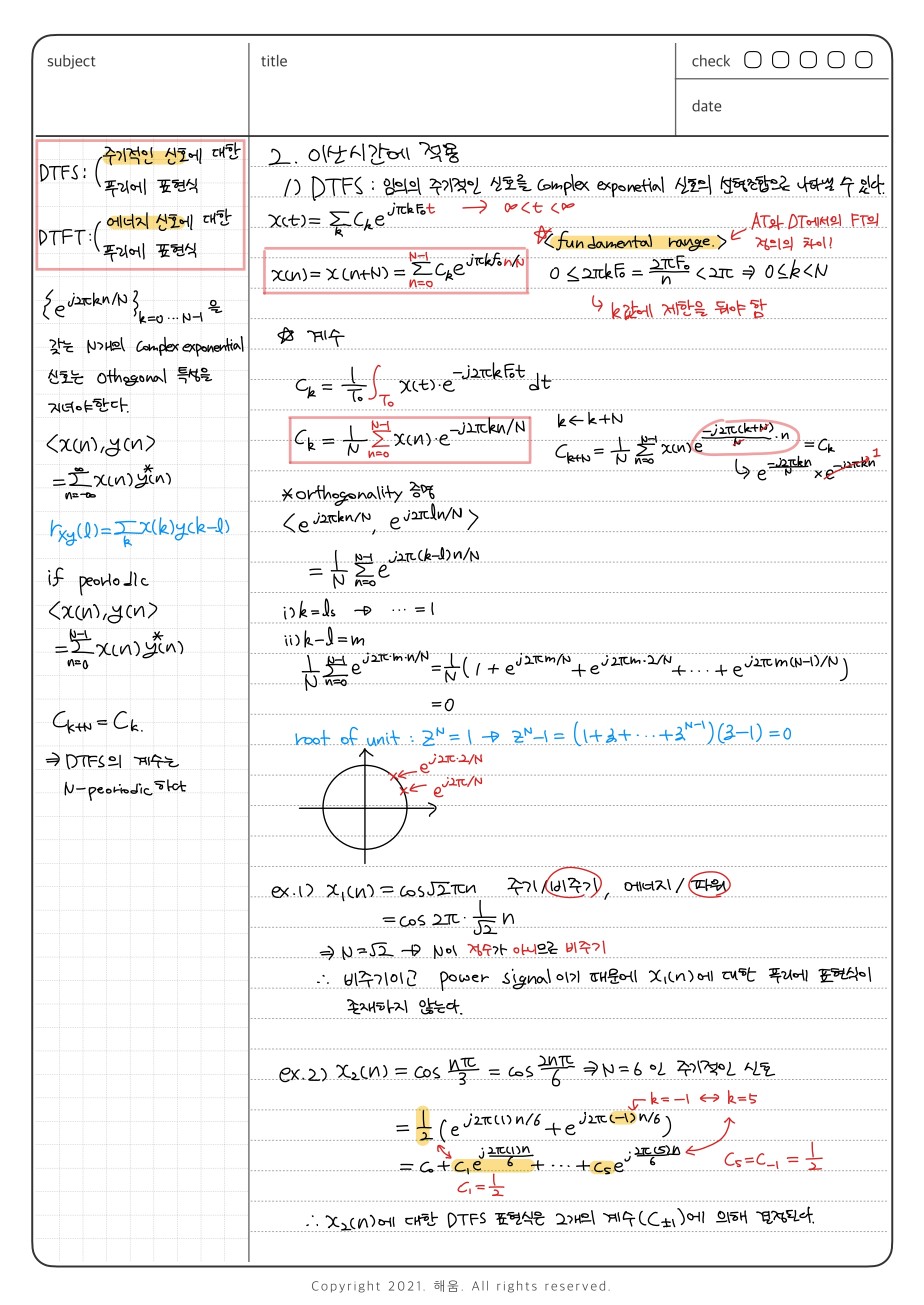 subject
title
check
date
DTFS : ( 주기적인 신호에 대한
푸리에 표현식
DTFT : ( 에너지 신호에 대한
푸리에 표현식
{e^{j2πkn/N}}_{k=0 ⋯ N-1} 을
갖는 N개의 Complex exponential
신호는 Othogonal 특성을
지녀야한다.
<x(n), y(n)>
= Σ_{n=-∞}^{∞} x(n) y*(n)
r_{xy}(l) = Σ_k x(k)y(k-l)
if peoriodic
<x(n), y(n)>
= Σ_{n=0}^{N-1} x(n) y*(n)
C_{k+N} = C_k.
⇒ DTFS의 계수는
N-peoriodic 하다
2. 이산시간에 적용
1) DTFS : 임의의 주기적인 신호를 Complex exponetial 신호의 선형조합으로 나타낼 수 있다.
x(t) = Σ_k C_k e^{j2πkF₀t} → ∞ < t < ∞
☆ <fundamental range.> ← AT와 DT에서의 FT의
정의의 차이!
x(n) = x(n+N) = Σ_{n=0}^{N-1} C_k e^{j2πkF₀n/N}
0 ≤ 2πkF₀ = 2πF₀/n < 2π ⇒ 0 ≤ k < N
↳ k값에 제한을 둬야 함
☆ 계수
C_k = 1/T₀ ∫_{T₀} x(t)·e^{-j2πkF₀t} dt
C_k = 1/N Σ_{n=0}^{N-1} x(n)·e^{-j2πkn/N}
k ← k+N
C_{k+N} = 1/N Σ_{n=0}^{N-1} x(n) e^{-j2π(k+N)/N · n} = C_k
↳ e^{-j2πkn/N} × e^{-j2πkn} 1
*orthogonality 증명
<e^{j2πkn/N}, e^{j2πln/N}>
= 1/N Σ_{n=0}^{N-1} e^{j2π(k-l)n/N}
i) k=ls → ⋯ = 1
ii) k-l = m
1/N Σ_{n=0}^{N-1} e^{j2π·m·n/N} = 1/N (1 + e^{j2πm/N} + e^{j2πm·2/N} + ⋯ + e^{j2πm(N-1)/N})
= 0
root of unit : z^N = 1 → z^N - 1 = (1+z+⋯+z^{N-1})(z-1) = 0
e^{j2π·2/N}
e^{j2π/N}
ex.1) x₁(n) = cos√2πn 주기/비주기, 에너지/파워
= cos 2π · 1/√2 n
⇒ N = √2 → N이 정수가 아니므로 비주기
∴ 비주기이고 power signal이기 때문에 x₁(n)에 대한 푸리에 표현식이
존재하지 않는다.
ex.2) x₂(n) = cos nπ/3 = cos 2nπ/6 ⇒ N=6 인 주기적인 신호
k=-1 ↔ k=5
= 1/2 (e^{j2π(1)n/6} + e^{j2π(-1)n/6})
= C₀ + C₁e^{j2π(1)n/6} + ⋯ + C₅e^{j2π(5)n/6}
C₅ = C₋₁ = 1/2
C₁ = 1/2
∴ x₂(n)에 대한 DTFS 표현식은 2개의 계수(C±1)에 의해 결정된다.
Copyright 2021. 해움. All rights reserved.